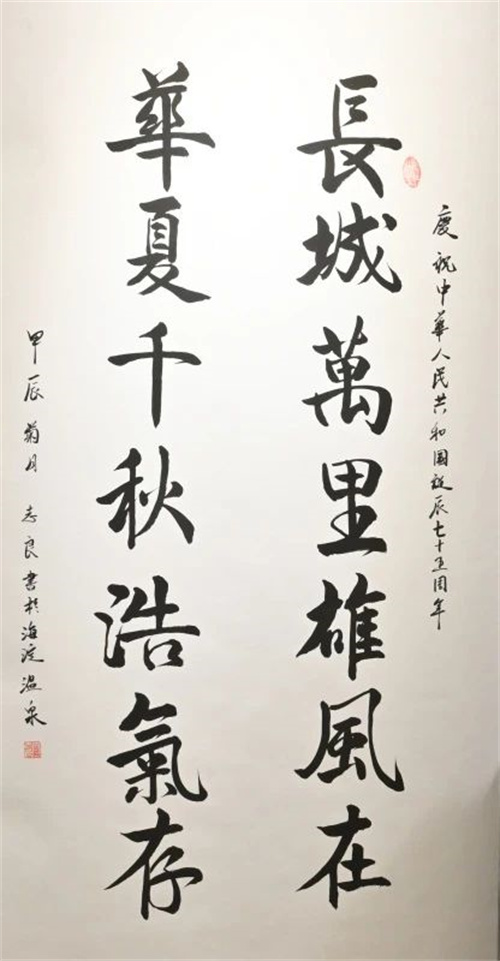 慶祝中華人民共和國誕辰七十五周年
長城萬里雄風在
華夏千秋浩氣存
甲辰菊月 志良書於海淀溫泉